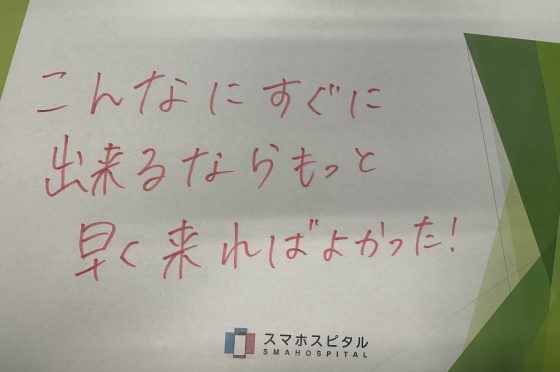 こんなにすぐに
出来るならもっと
早く来ればよかった!
スマホスピタル
SMAHOSPITAL